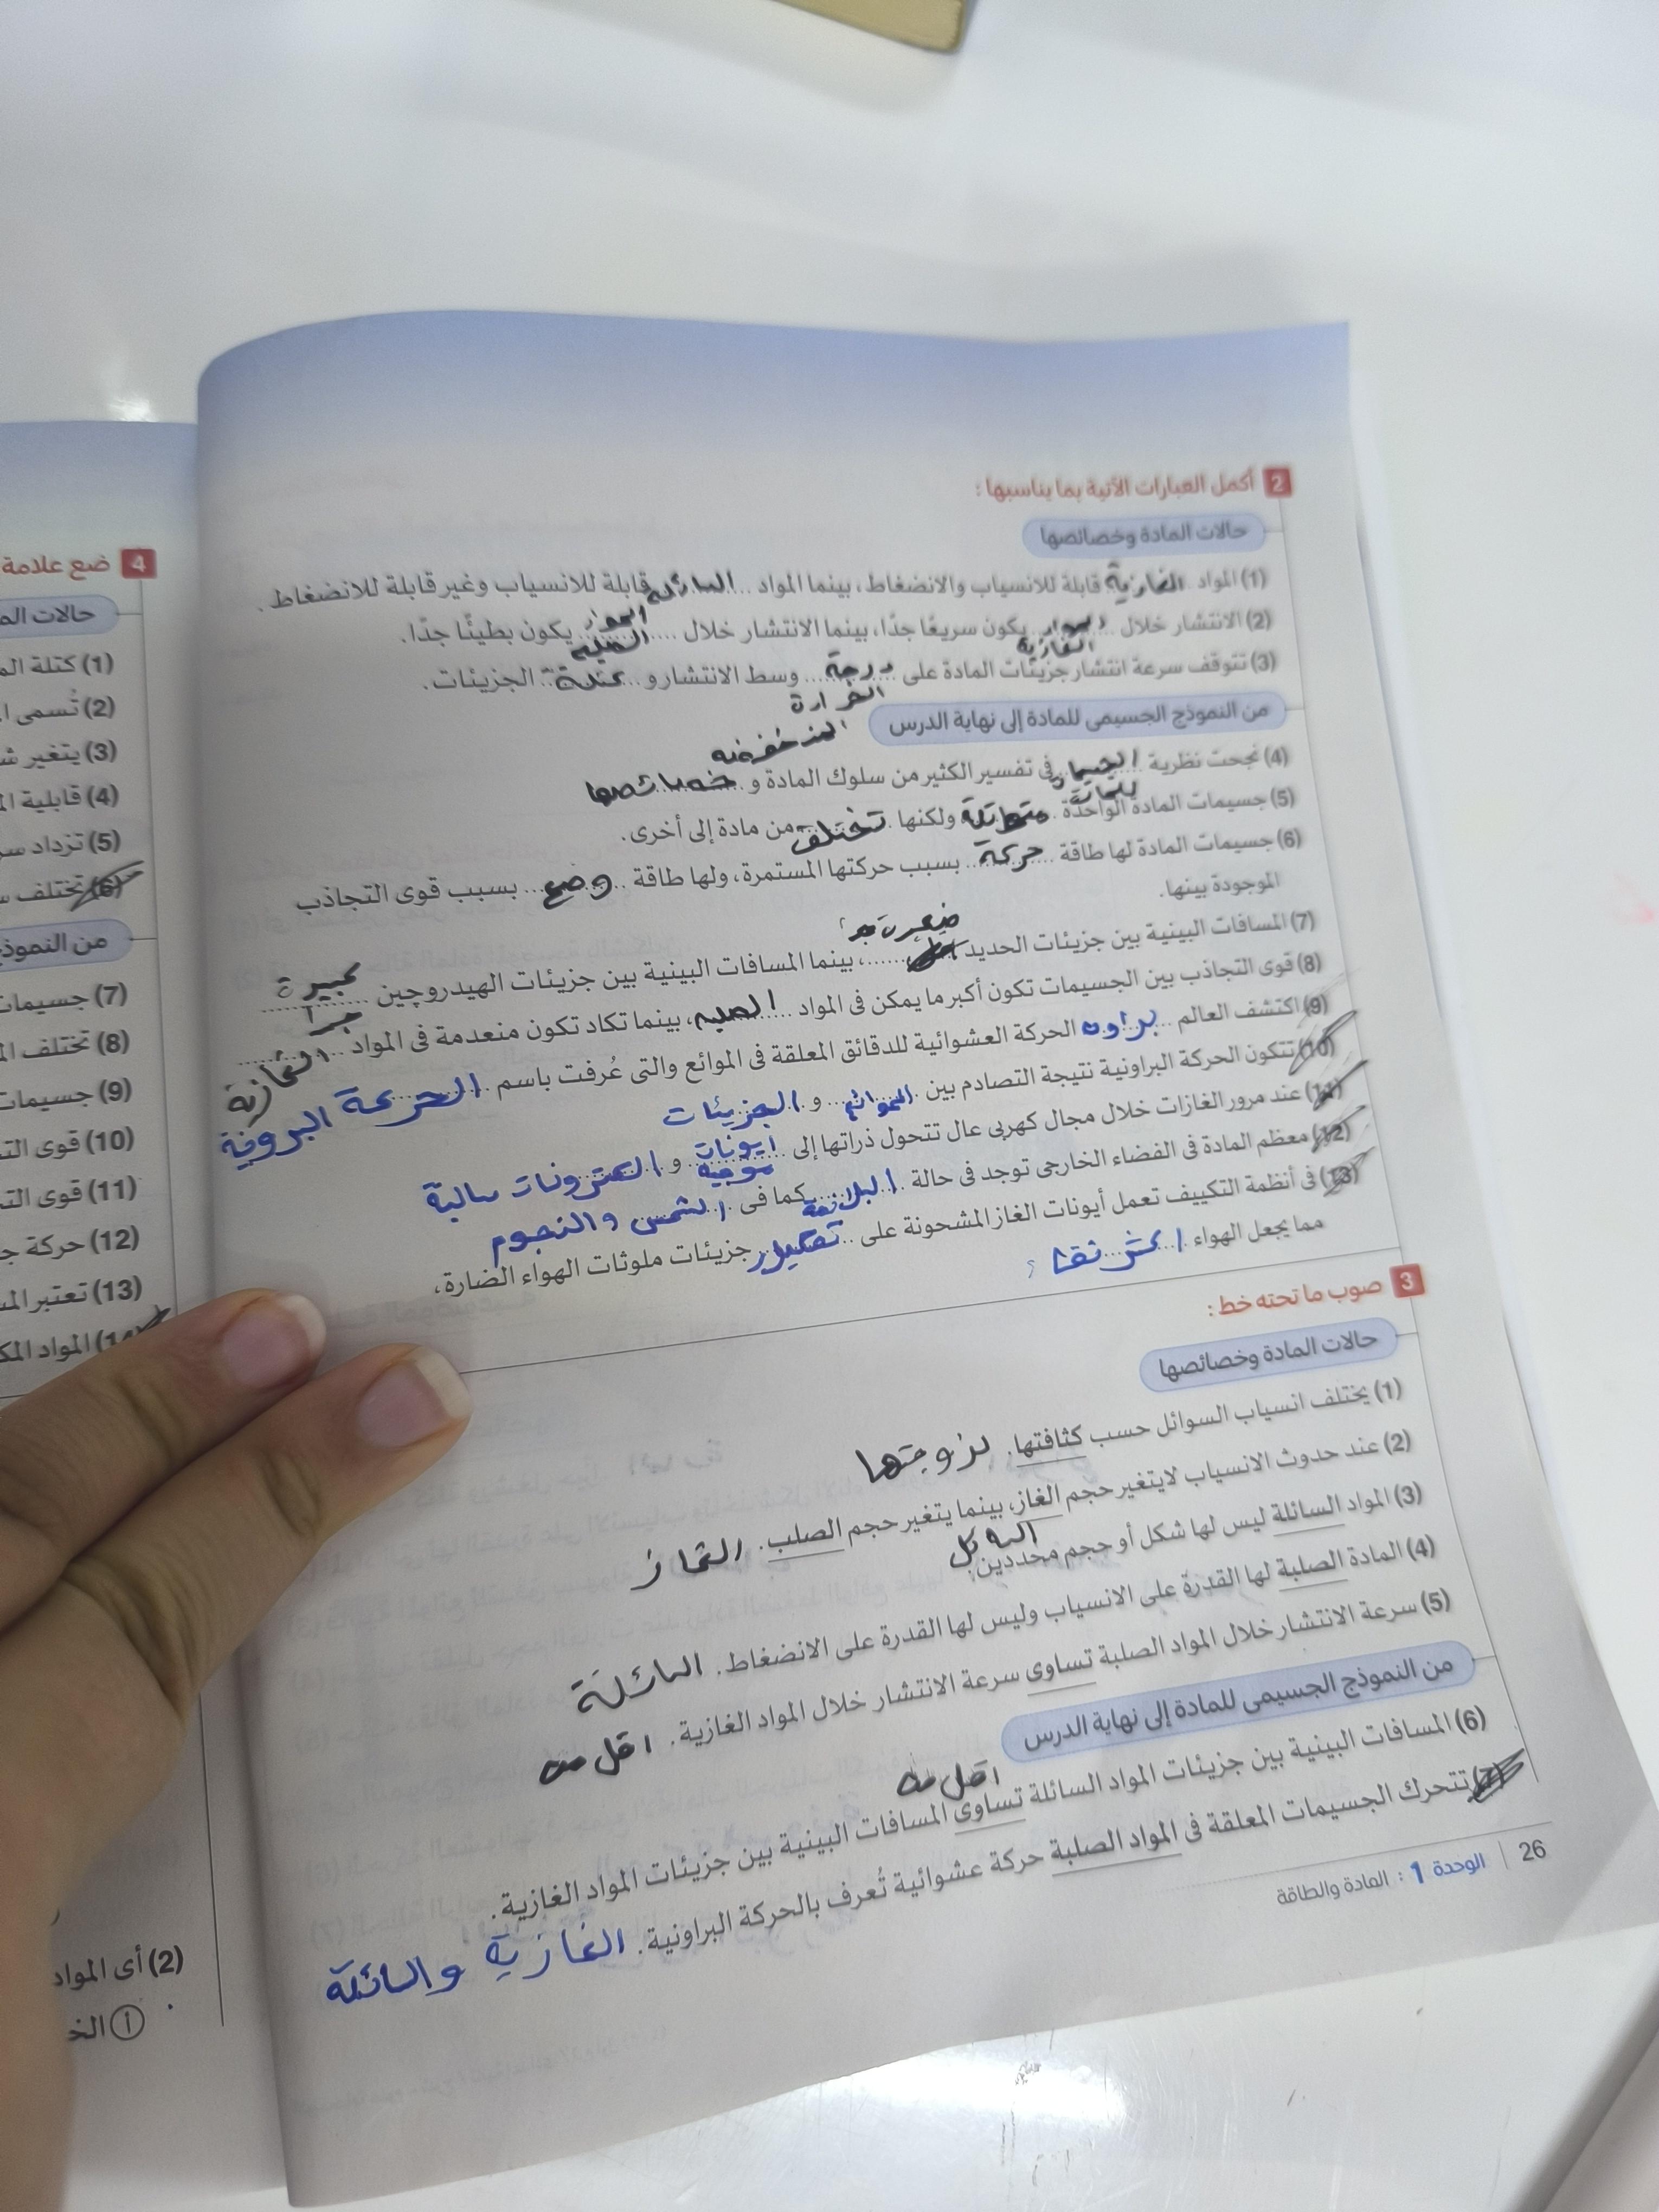 2 أكمل العبارات الآتية بما يناسبها :
حالات المادة وخصائصها
(1) المواد الغازية قابلة للانسياب والانضغاط، بينما المواد السائلة قابلة للانسياب وغير قابلة للانضغاط .
(2) الانتشار خلال المواد الغازية يكون سريعًا جدًا، بينما الانتشار خلال المواد الصلبه يكون بطيئًا جدًا.
(3) تتوقف سرعة انتشار جزيئات المادة على درجة الحرارة وسط الانتشار و كتلة الجزيئات.
من النموذج الجسيمى للمادة إلى نهاية الدرس
(4) نجحت نظرية فى تفسير الكثير من سلوك المادة و خصائصها
(5) جسيمات المادة الواحدة متماثلة ولكنها تختلف من مادة إلى أخرى.
(6) جسيمات المادة لها طاقة حركة بسبب حركتها المستمرة، ولها طاقة وضع بسبب قوى التجاذب
الموجودة بينها.
(7) المسافات البينية بين جزيئات الحديد ، بينما المسافات البينية بين جزيئات الهيدروچين كبيرة جدا
(8) قوى التجاذب بين الجسيمات تكون أكبر ما يمكن فى المواد الصلبه، بينما تكاد تكون منعدمة فى المواد الغازية
(9) اكتشف العالم براون الحركة العشوائية للدقائق المعلقة فى الموائع والتى عُرفت باسم الحركة البرونية
(10) تتكون الحركة البراونية نتيجة التصادم بين الموائع و الجزيئات
(11) عند مرور الغازات خلال مجال كهربى عال تتحول ذراتها إلى ايونات موجبة و الكترونات سالبة
(12) معظم المادة فى الفضاء الخارجى توجد فى حالة البلازمة كما فى الشمس والنجوم
(13) فى أنظمة التكييف تعمل أيونات الغاز المشحونة على تكسير جزيئات ملوثات الهواء الضارة،
مما يجعل الهواء اكثر نقاء
3 صوب ما تحته خط :
حالات المادة وخصائصها
(1) يختلف انسياب السوائل حسب كثافتها. لزوجتها
(2) عند حدوث الانسياب لا يتغير حجم الغاز، بينما يتغير حجم الصلب. الغاز
(3) المواد السائلة ليس لها شكل أو حجم محددين.
(4) المادة الصلبة لها القدرة على الانسياب وليس لها القدرة على الانضغاط. السائلة
(5) سرعة الانتشار خلال المواد الصلبة تساوى سرعة الانتشار خلال المواد الغازية. اقل من
من النموذج الجسيمى للمادة إلى نهاية الدرس
(6) المسافات البينية بين جزيئات المواد السائلة تساوى المسافات البينية بين جزيئات المواد الغازية. اقل من
(7) تتحرك الجسيمات المعلقة فى المواد الصلبة حركة عشوائية تُعرف بالحركة البراونية. الغازية والسائلة
26 | الوحدة 1 : المادة والطاقة
4 ضع علامة
حالات الم
(1) كتلة الم
(2) تُسمى ا
(3) يتغير ش
(4) قابلية ا
(5) تزداد سر
(6) تختلف س
من النموذج
(7) جسيمات
(8) تختلف الم
(9) جسيمات
(10) قوى الت
(11) قوى الت
(12) حركة ج
(13) تعتبر الم
(14) المواد المك
(2) أى المواد
أ الخ